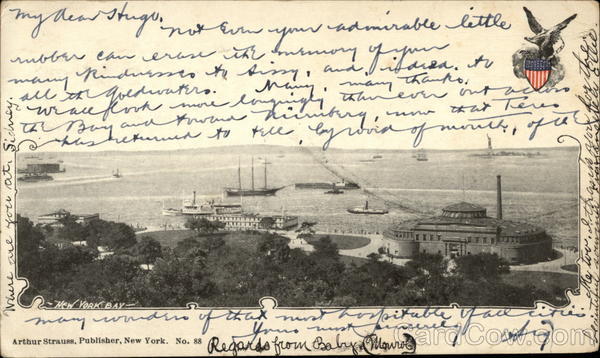 My dear Hugo.
Not even your admirable little
rubber can erase the memory of your
many kindnesses to Sissy, and, indeed, to
all the Goldwaters. Many, many thanks.
We all look more longingly than ever out across
the Bay and toward Nürnberg, now that Teres
has returned to tell, by word of mouth, of the
many wonders of that most hospitable of all cities.
Yours most sincerely
Where are you at Sidney.
NEW YORK BAY
Arthur Strauss, Publisher, New York. No. 88
Regards from Baby (Monroe)
CardCow.com